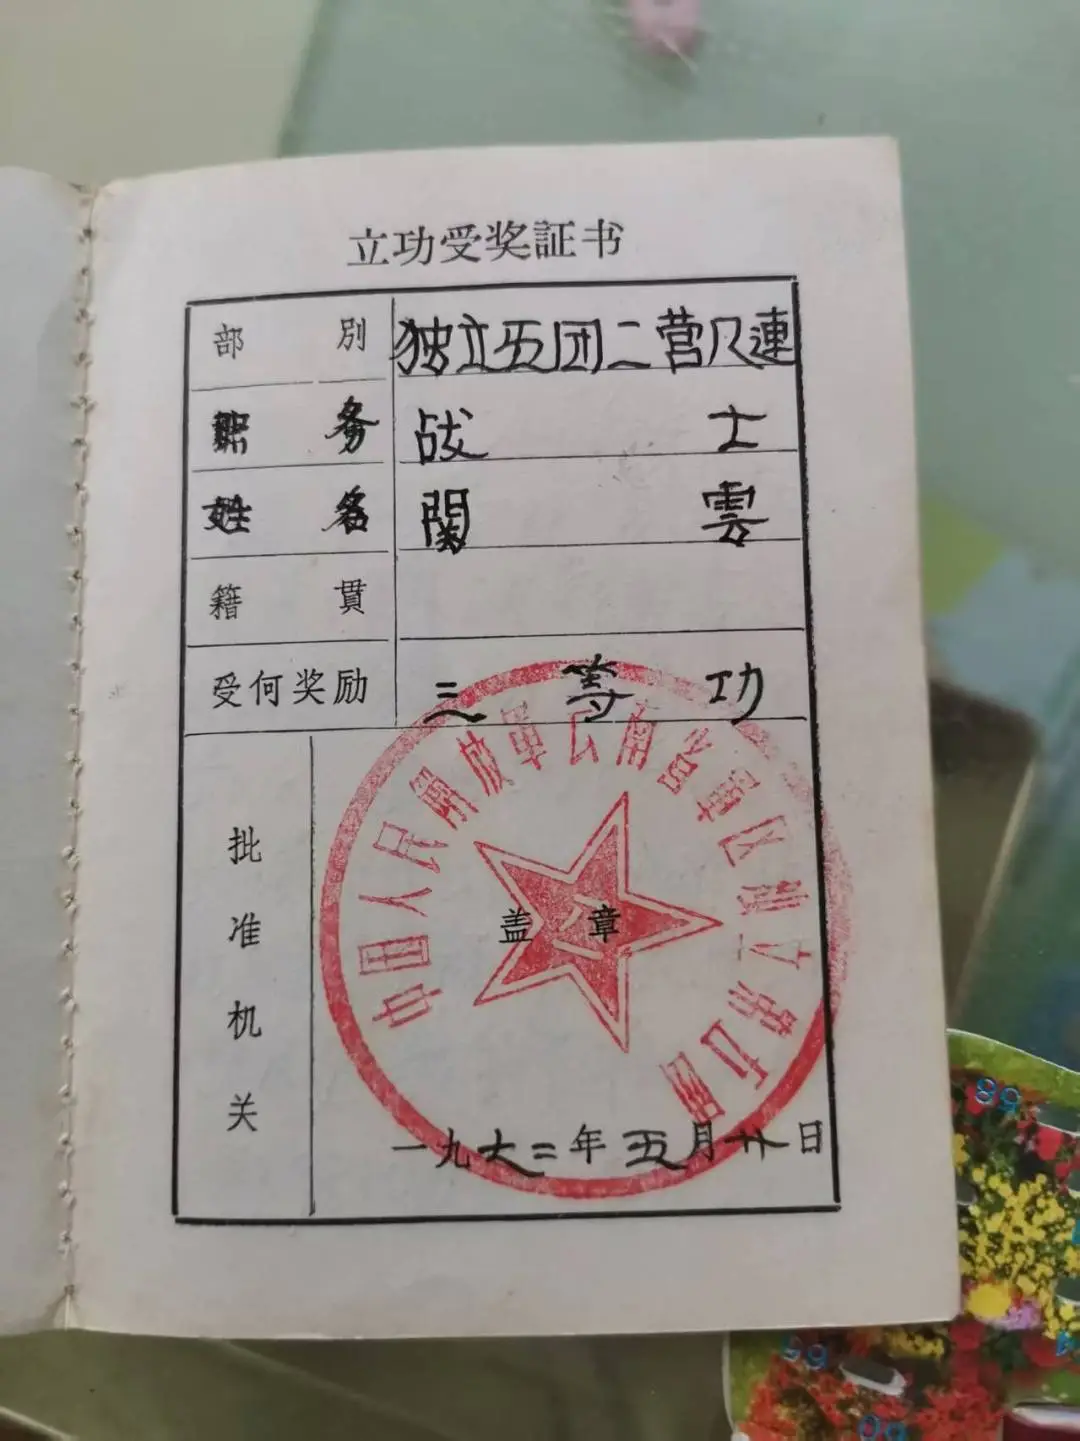 立功受奖証书
部別 独立五团二营八連
职务 战士
姓名 関雲
籍貫
受何奖励 三等功
中国人民解放軍云南省軍区独立第五團
批准机关
盖章
一九七二年五月廿日
68
65
60